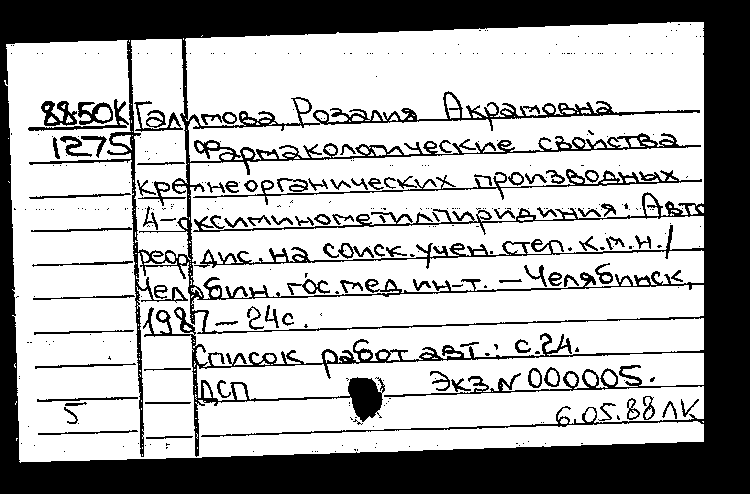 8850К Галимова, Розалия Акрамовна
1275 Фармакологические свойства
кремнеорганических производных
4-оксиминометилпиридиния: Авто
реф. дис. на соиск. учен. степ. к.м.н./
Челябин. гос. мед. ин-т. – Челябинск,
1987 – 24с.
Список работ авт.: с.24.
ДСП Экз. N 000005.
5 6.05.88 ЛК